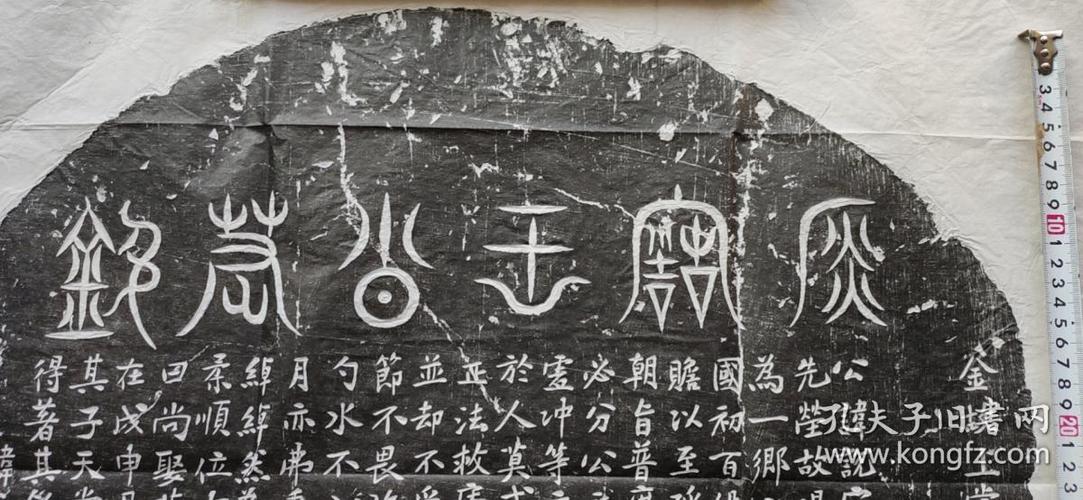 王公墓銘
金坡王
公諱説
先塋故
為一鄉
國初百
贍以至
朝旨普度
必分公
靈沖等
於人莫
正法救
並却不
節不畏
勺水不
月亦弗
綽綽然
柔順位
田尚娶
在戊申
其子天
得著其
諱
3 4 5 6 7 8 9 10 1 2 3 4 5 6 7 8 9 20 1 2 3
孔夫子旧書网
www.kongfz.com